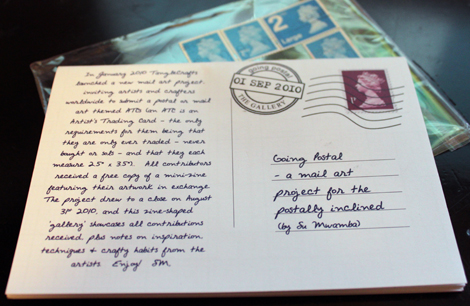 In January 2010 Tangle Crafts
launched a new mail art project,
inviting artists and crafters
worldwide to submit a postal or mail
art themed ATC (an ATC is an
Artist's Trading Card - the only
requirements for them being that
they are only ever traded - never
bought or sold - and that they each
measure 2.5" x 3.5"). All contributors
received a free copy of a mini-zine
featuring their artwork in exchange.
The project drew to a close on August
31st 2010, and this zine-shaped
'gallery' showcases all contributions
received, plus notes on inspiration,
techniques & crafty habits from the
artists. Enjoy! SM.
going postal
01 SEP 2010
THE GALLERY
1P
Going Postal
- a mail art
project for the
postally inclined
(by Su Mwamba)
2
Large